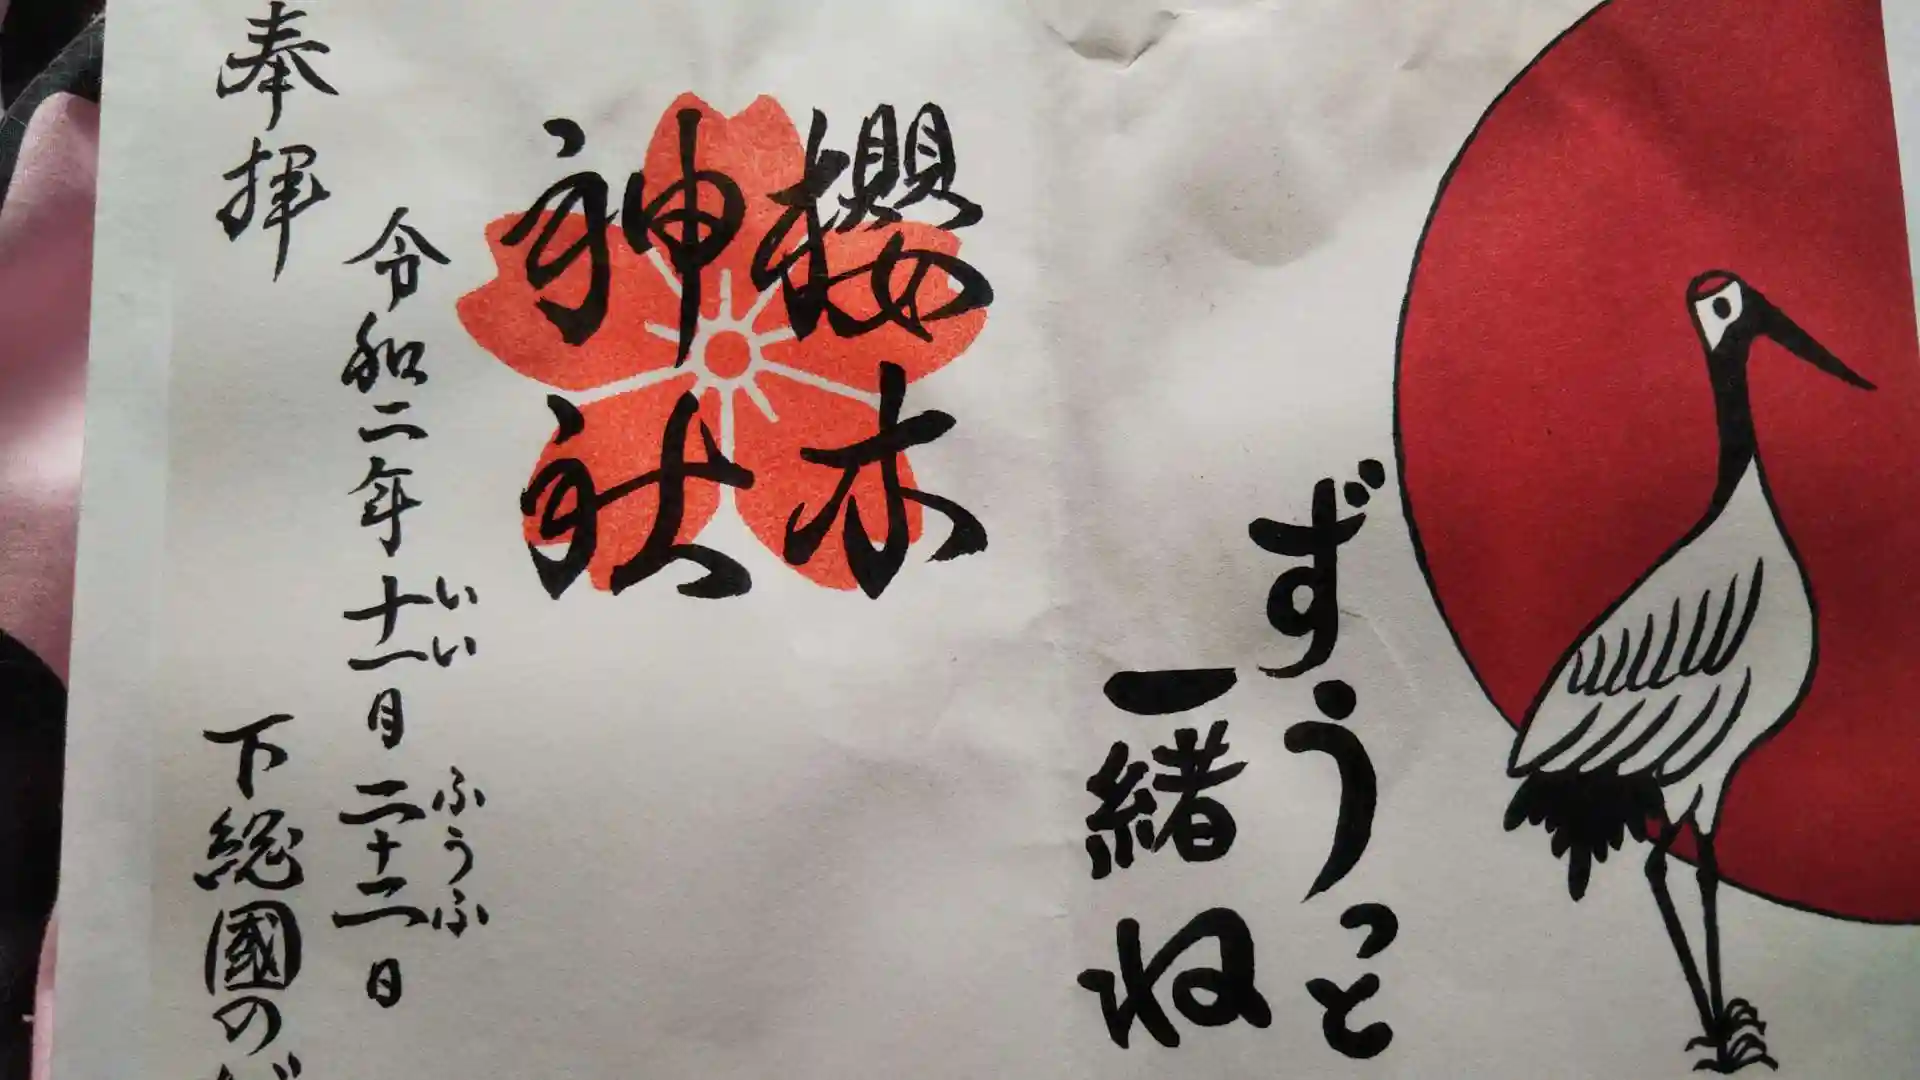 ずうっと
一緒ね
櫻木
神社
いい ふうふ
令和二年十一月二十二日
奉拝
下総國の